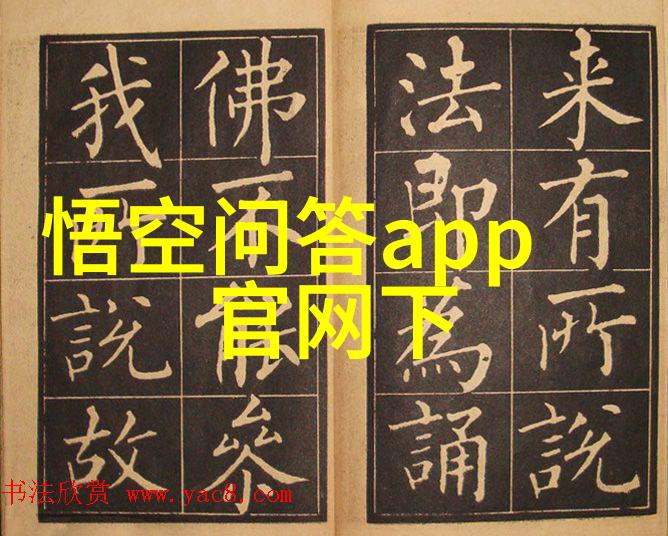 来有所說
法即為誦
佛不能叅
我所說故
悟空问答app
官网下
书法欣赏 www.yac8.com